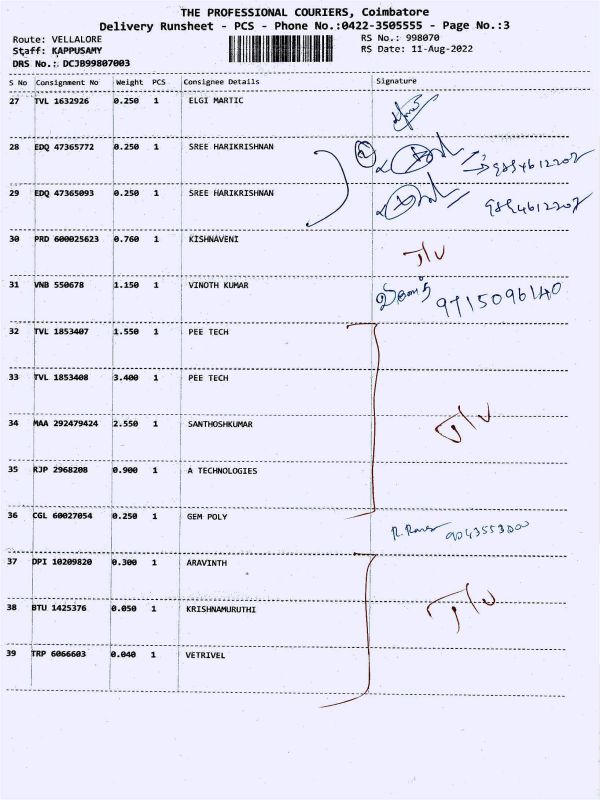 THE PROFESSIONAL COURIERS, Coimbatore
Delivery Runsheet - PCS - Phone No.:0422-3505555 - Page No.:3
Route: VELLALORE
RS No.: 998070
Staff: KAPPUSAMY
RS Date: 11-Aug-2022
DRS No.: DCJB99807003
S No Consignment No Weight PCS Consignee Details Signature
27 TVL 1632926 0.250 1 ELGI MARTIC
28 EDQ 47365772 0.250 1 SREE HARIKRISHNAN
29 EDQ 47365093 0.250 1 SREE HARIKRISHNAN
30 PRD 600025623 0.760 1 KISHNAVENI
31 VNB 550678 1.150 1 VINOTH KUMAR 9715096140
32 TVL 1853407 1.550 1 PEE TECH
33 TVL 1853408 3.400 1 PEE TECH
34 MAA 292479424 2.550 1 SANTHOSHKUMAR
35 RJP 2968208 0.900 1 A TECHNOLOGIES
36 CGL 60027054 0.250 1 GEM POLY
37 DPI 10209820 0.300 1 ARAVINTH
38 BTU 1425376 0.050 1 KRISHNAMURUTHI
39 TRP 6066603 0.040 1 VETRIVEL